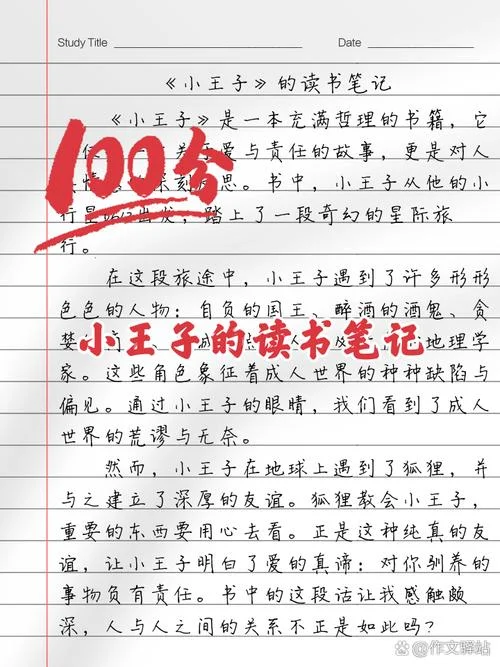 Study Title
Date
《小王子》的读书笔记
《小王子》是一本充满哲理的书籍，它
100分
爱与责任的故事，更是对人
思。书中，小王子从他的小
行星 出发，踏上了一段奇幻的星际旅
行。
在这段旅途中，小王子遇到了许多形形
色色的人物：自负的国王、醉酒的酒鬼、贪
婪
小王子的读书笔记
地理学
家。这些角色象征着成人世界的种种缺陷与
偏见。通过小王子的眼睛，我们看到了成人
世界的荒谬与无奈。
然而，小王子在地球上遇到了狐狸，并
与之建立了深厚的友谊。狐狸教会小王子，
重要的东西要用心去看。正是这种纯真的友
谊，让小王子明白了爱的真谛：对你驯养的
事物负有责任。书中的这段话让我感触颇
深，人与人之间的关系不正是如此吗？
@作文驿站